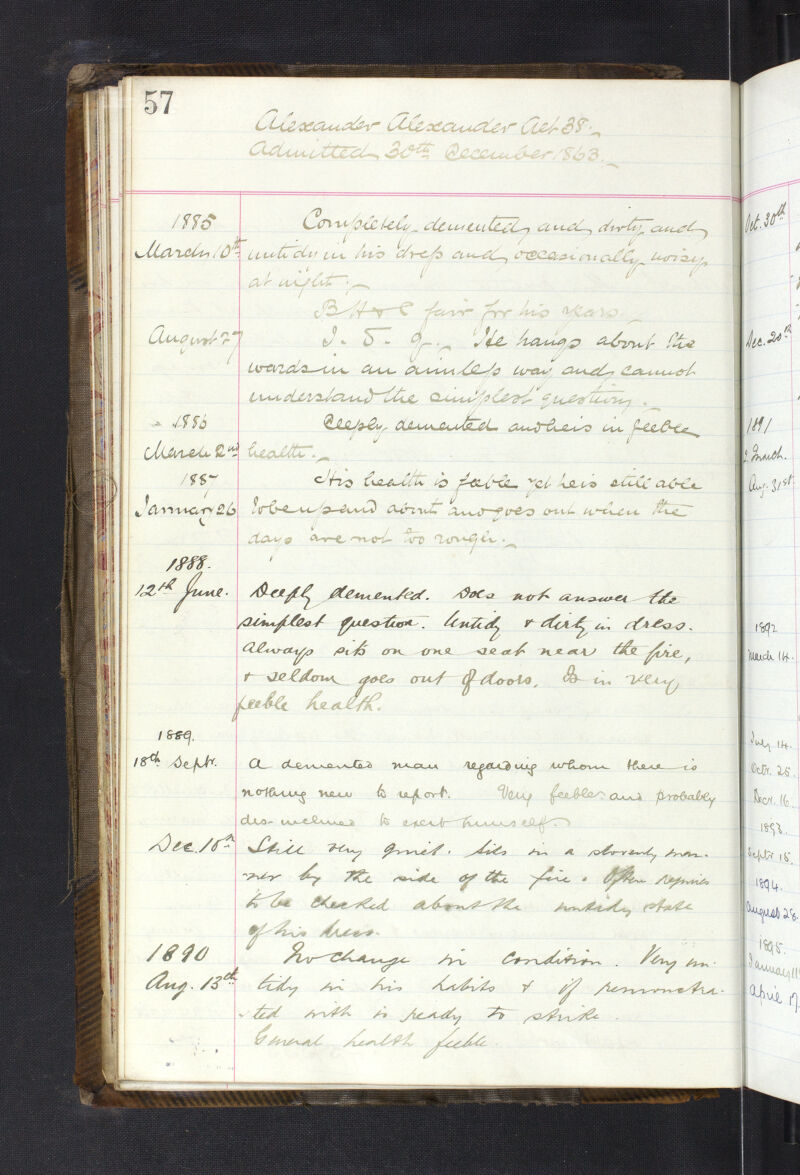 57
Alexander Alexander Aet 38._
Admitted 30th December 1863._
1885 Completely demented, and dirty and
March 10th untidy in his dress and occasionally noisy
at night._
B H & C fair for his years._
August 27 I. S. Q._ He hangs about the
wards in an aimless way and cannot
understand the simplest question._
1886 Deeply demented and he is in feeble
March 2nd health._
1887 His health is feeble yet he is still able
January 26 to be up and about and goes out when the
days are not too rough._
1888.
12th June. Deeply demented. Does not answer the
simplest question. Untidy & dirty in dress.
Always sits on one seat near the fire,
& seldom goes out of doors. Is in very
feeble health.
1889.
18th Septr. A demented man regarding whom there is
nothing new to report. Very feeble and probably
dis-inclined to exert himself.
Dec. 10th Still very quiet. Sits in a slovenly man-
ner by the side of the fire. Often requires
to be checked about the untidy state
of his dress.
1890 No change in condition. Very un-
Aug. 13th tidy in his habits & if remonstra-
-ted with is ready to strike.
General health feeble.
Oct. 30th
Dec. 20th
1891
2 March.
Aug. 31st
1892
March 14.
July 14.
Octr. 25.
Decr. 16
1893.
Septr 15.
1894.
August 28.
1895.
January 11
April 17